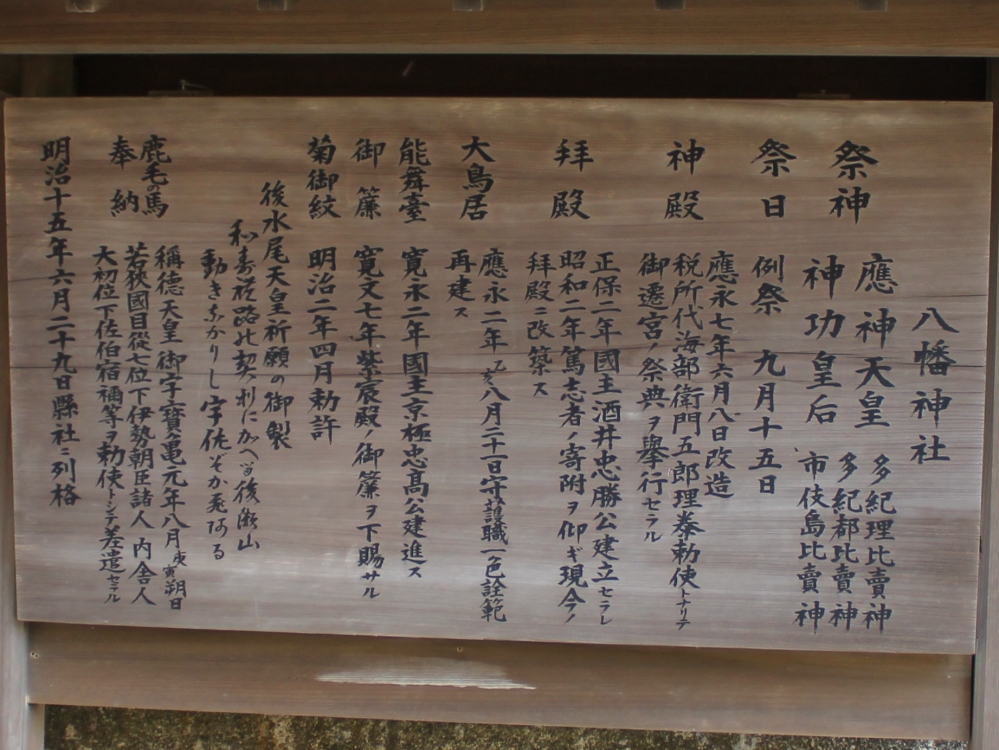 八幡神社
祭神 應神天皇 多紀理比賣神
多紀都比賣神
神功皇后 市伎島比賣神
祭日 例祭 九月十五日
神殿 應永七年六月八日改造
税所代海部衛門五郎理拳勅使トナリテ
御遷宮ノ祭典ヲ擧行セラル
拜殿 正保二年國主酒井忠勝公建立セラレ
昭和二年篤志者ノ寄附ヲ仰ギ現今ノ
拜殿ニ改築ス
大鳥居 應永二年乙亥八月二十一日守護職一色詮範
再建ス
能舞臺 寛永二年國主京極忠髙公建進ス
御簾 寛文七年紫宸殿ノ御簾ヲ下賜サル
菊御紋 明治二年四月勅許
後水尾天皇祈願の御製
動きなかりし宇佐
鹿毛の馬奉納 稱德天皇御宇寶亀元年八月庚寅朔日
若狹國目從七位下伊勢朝臣諸人 内舎人
大初位下佐伯宿禰等ヲ勅使トシテ差遣セラル
明治十五年六月二十九日縣社ニ列格